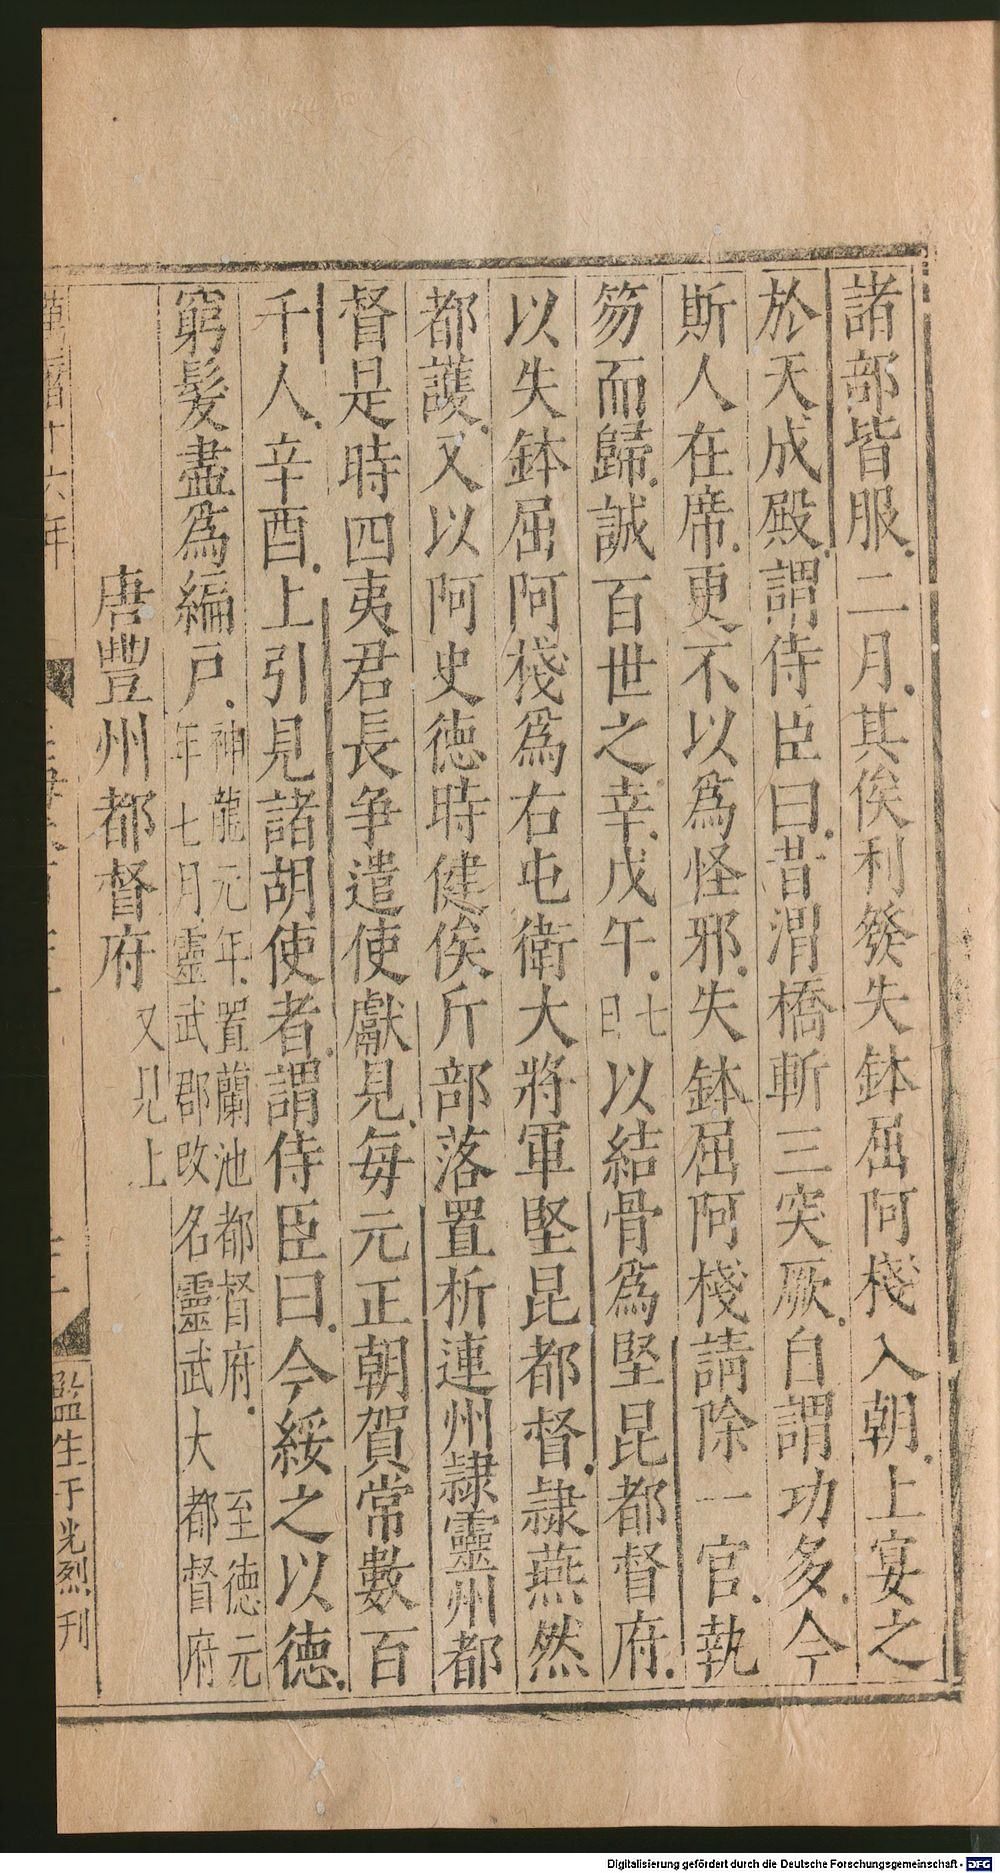 諸部皆服二月其俟利發失鉢屈阿棧入朝上宴之
於天成殿謂侍臣曰昔渭橋斬三突厥自謂功多今
斯人在席更不以爲怪邪失鉢屈阿棧請除一官執
笏而歸誠百世之幸戊午七日以結骨爲堅昆都督府
以失鉢屈阿棧爲右屯衛大將軍堅昆都督隷燕然
都護又以阿史德時健俟斤部落置祈連州隷靈州都
督是時四夷君長争遣使獻見每元正朝賀常數百
千人辛酉上引見諸胡使者謂侍臣曰今綏之以德
窮髮盡爲編戸神龍元年置蘭池都督府至德元
年七月靈武郡改名靈武大都督府
唐豐州都督府又見上
萬曆十六年
監生于光烈刊
Digitalisierung gefördert durch die Deutsche Forschungsgemeinschaft - DFG